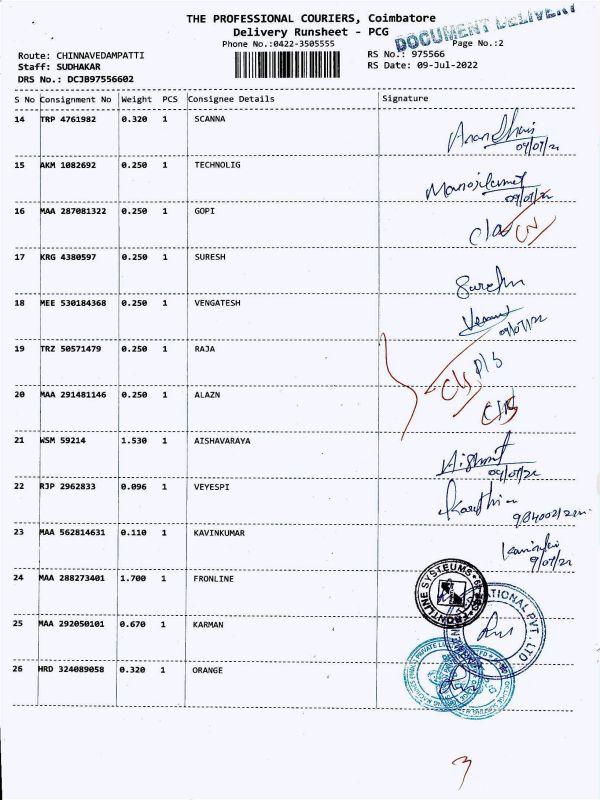 THE PROFESSIONAL COURIERS, Coimbatore
Delivery Runsheet - PCG
DOCUMENT DELIVERY
Phone No.:0422-3505555
Page No.:2
Route: CHINNAVEDAMPATTI
RS No.: 975566
Staff: SUDHAKAR
RS Date: 09-Jul-2022
DRS No.: DCJB97556602
S No Consignment No Weight PCS Consignee Details Signature
14 TRP 4761982 0.320 1 SCANNA
09/07/22
15 AKM 1082692 0.250 1 TECHNOLIG
09/07/22
16 MAA 287081322 0.250 1 GOPI
17 KRG 4380597 0.250 1 SURESH
Suresh
18 MEE 530184368 0.250 1 VENGATESH
09/07/22
19 TRZ 50571479 0.250 1 RAJA
D/S
20 MAA 291481146 0.250 1 ALAZN
21 WSM 59214 1.530 1 AISHAVARAYA
09/07/22
22 RJP 2962833 0.096 1 VEYESPI
23 MAA 562814631 0.110 1 KAVINKUMAR
9/07/22
24 MAA 288273401 1.700 1 FRONLINE
FRONTLINE SYSTEUMS
25 MAA 292050101 0.670 1 KARMAN
PVT. LTD
26 HRD 324089058 0.320 1 ORANGE
3